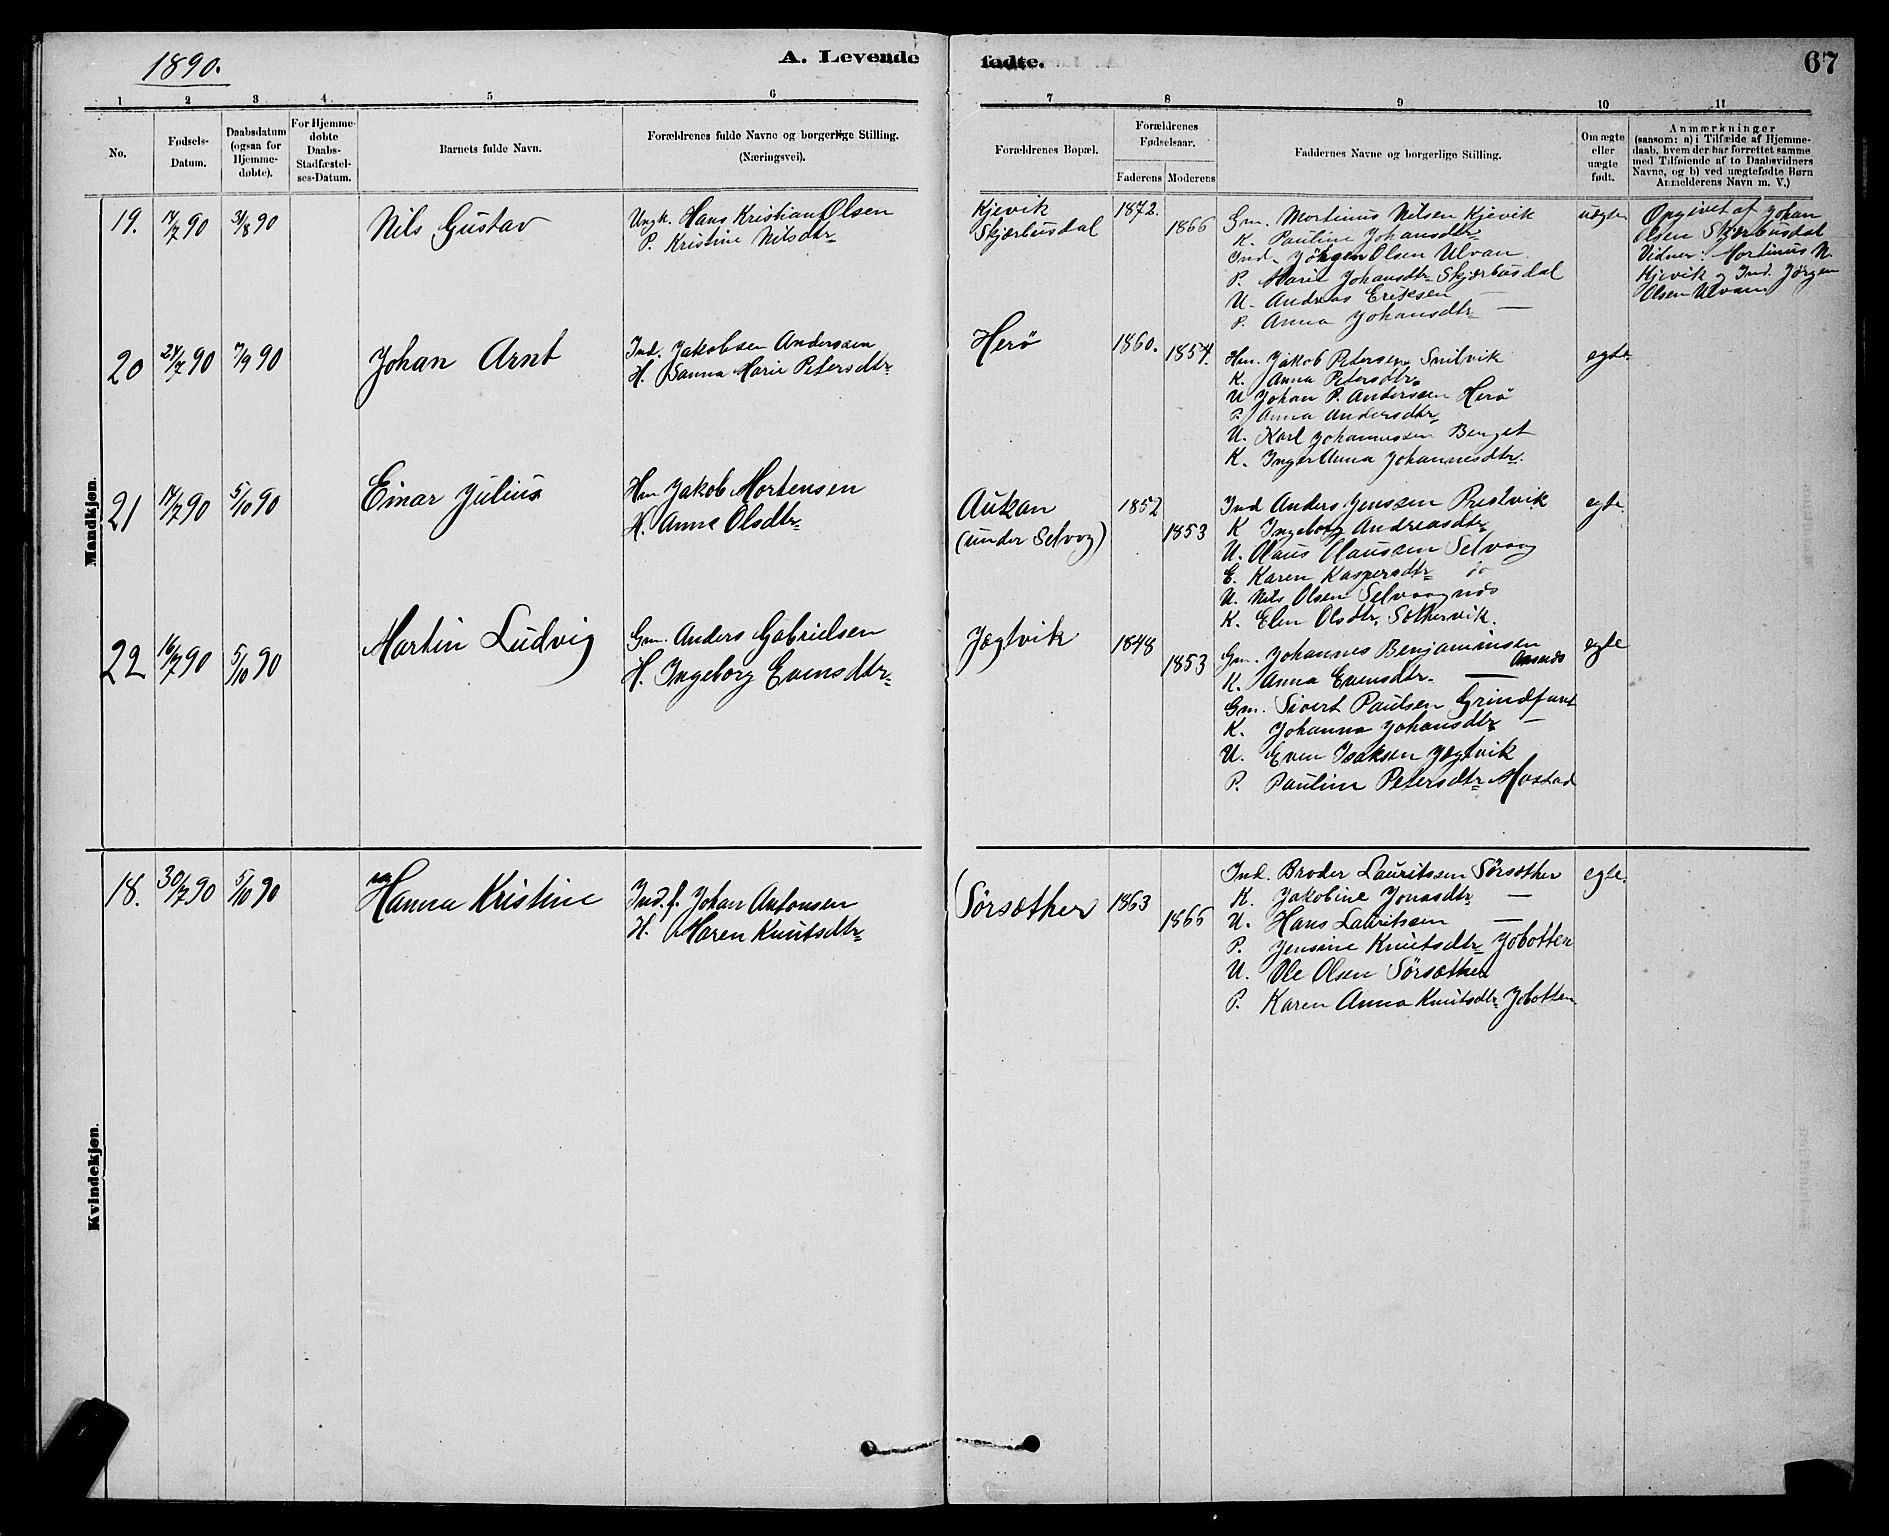 1890.
A. Levende fødte.
67
1 2 3 4 5 6 7 8 9 10 11
No.
Fødsels-Datum.
Daabsdatum (ogsaa for Hjemme-døbte).
For Hjemme-døbte Daabs-Stadfæstel-ses-Datum.
Barnets fulde Navn.
Forældrenes fulde Navne og borgerlige Stilling.
(Næringsvei).
Forældrenes Bopæl.
Forældrenes Fødselsaar.
Faderens Moderens
Faddernes Navne og borgerlige Stilling.
Om ægte eller uægte født.
Anmærkninger
(saasom: a) i Tilfælde af Hjemme-
daab, hvem der har forrettet samme
med Tilføiende af to Daabsvidners
Navne, og b) ved uægtefødte Børn
Anmelderens Navn m. V.)
Mandkjøn.
19. 7/7 90 3/8 90 Nils Gustav
Ungk. Hans Kristian Olsen
P. Kristine Nilsdtr
Kjevik
Skjærbusdal
1872.
1866
Gm. Mortinus Nilsen Kjevik
K. Pauline Johansdtr
Ind. Jörgen Olsen Ulvan
P. Marie Johansdtr Skjærbusdal
U. Andreas Eriksen —
P. Anna Johansdtr —
uægte
Opgivet af Johan
Olsen Skjærbusdal
Vidner: Mortinus N.
Kjevik og Ind. Jörgen
Olsen Ulvan
20 24/7 90 7/9 90 Johan Arnt
Ind. Jakobsen Anderssen
H. Sanna Marie Petersdtr
Herö
1860.
1854.
Hm. Jakob Petersen Snilvik
K. Anna Petersdtr
U Johan P. Anderssen Herö
P. Anna Andersdtr
U. Karl Johannessen Berget
K. Inger Anna Johannesdtr.
egte
21 17/7 90 5/10 90 Einar Julius
Hm Jakob Mortensen
H. Anne Olsdtr
Aukan
(under Selvog)
1852
1853
Ind Anders Jenssen Prestvik
K Ingeborg Andreasdtr
U. Claus Claussen Selvaag
E. Karen Kaspersdtr do
U. Nils Olsen Selvaagnes
K. Elen Olsdtr. Sæthervik.
egte
22 16/7 90 5/10 90 Martin Ludvig
Gm. Anders Gabrielsen
H. Ingeborg Evensdtr
Jægtvik
1848
1853
Gm. Johannes Benjaminsen
K. Anna Evensdtr. —
Gm. Sivert Paulsen Grindfaret
K. Johanna Johansdtr —
U. Even Isaksen Jægtvik
P. Pauline Petersdtr Mostad
egte
Kvindekjøn.
18. 30/7 90 5/10 90 Hanna Kristine
Ind. f. Johan Antonsen
H. Maren Knutsdtr
Sörsæther
1863
1866
Ind. Broder Lauritssen Sörsæther
K. Jakobine Jonasdtr —
U. Hans Lauritsen —
P. Jensine Knutsdtr Jobotten
U. Ole Olsen Sörsæther
P. Karen Anna Knutsdtr Jobotten
egte.